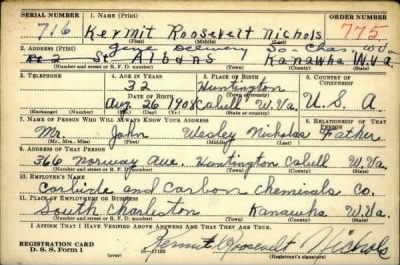 SERIAL NUMBER 1. NAME (Print) ORDER NUMBER
716 Kermit Roosevelt Nichols 775
(First) (Middle) (Last)
2. ADDRESS (Print)
So- Char. W.Va.
St Albans Kanawha W.Va.
(Number and street or R. F. D. number) (Town) (County) (State)
3. TELEPHONE 4. AGE IN YEARS 5. PLACE OF BIRTH 6. COUNTRY OF CITIZENSHIP
32 Huntington
DATE OF BIRTH (Town or county)
Aug. 26 1908 Cabell W.Va. U. S. A.
(Exchange) (Number) (Mo.) (Day) (Yr.) (State or country)
7. NAME OF PERSON WHO WILL ALWAYS KNOW YOUR ADDRESS 8. RELATIONSHIP OF THAT PERSON
Mr. John Wesley Nicholas Father
(Mr., Mrs., Miss) (First) (Middle) (Last)
9. ADDRESS OF THAT PERSON
366 Norway Ave. Huntington Cabell W.Va.
(Number and street or R. F. D. number) (Town) (County) (State)
10. EMPLOYER'S NAME
Carbide and Carbon Chemicals Co.
11. PLACE OF EMPLOYMENT OR BUSINESS
South Charleston Kanawha W.Va.
(Number and street or R. F. D. number) (Town) (County) (State)
I AFFIRM THAT I HAVE VERIFIED ABOVE ANSWERS AND THAT THEY ARE TRUE.
REGISTRATION CARD
D. S. S. Form 1 Kermit Roosevelt Nichols
(Registrant's signature)